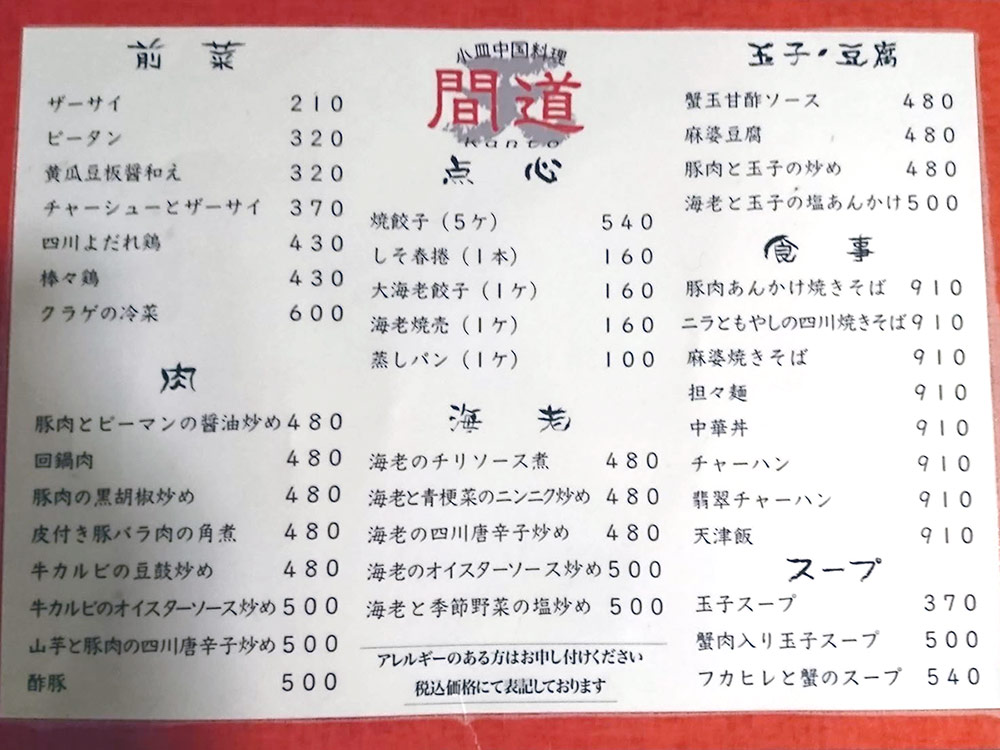 前菜
ザーサイ 210
ピータン 320
黄瓜豆板醤和え 320
チャーシューとザーサイ 370
四川よだれ鶏 430
棒々鶏 430
クラゲの冷菜 600
肉
豚肉とピーマンの醤油炒め 480
回鍋肉 480
豚肉の黒胡椒炒め 480
皮付き豚バラ肉の角煮 480
牛カルビの豆鼓炒め 480
牛カルビのオイスターソース炒め 500
山芋と豚肉の四川唐辛子炒め 500
酢豚 500
小皿中国料理
間道
Kanto
点心
焼餃子(5ケ) 540
しそ春捲(1本) 160
大海老餃子(1ケ) 160
海老焼売(1ケ) 160
蒸しパン(1ケ) 100
海老
海老のチリソース煮 480
海老と青梗菜のニンニク炒め 480
海老の四川唐辛子炒め 480
海老のオイスターソース炒め 500
海老と季節野菜の塩炒め 500
アレルギーのある方はお申し付けください
税込価格にて表記しております
玉子・豆腐
蟹玉甘酢ソース 480
麻婆豆腐 480
豚肉と玉子の炒め 480
海老と玉子の塩あんかけ 500
食事
豚肉あんかけ焼きそば 910
ニラともやしの四川焼きそば 910
麻婆焼きそば 910
担々麺 910
中華丼 910
チャーハン 910
翡翠チャーハン 910
天津飯 910
スープ
玉子スープ 370
蟹肉入り玉子スープ 500
フカヒレと蟹のスープ 540